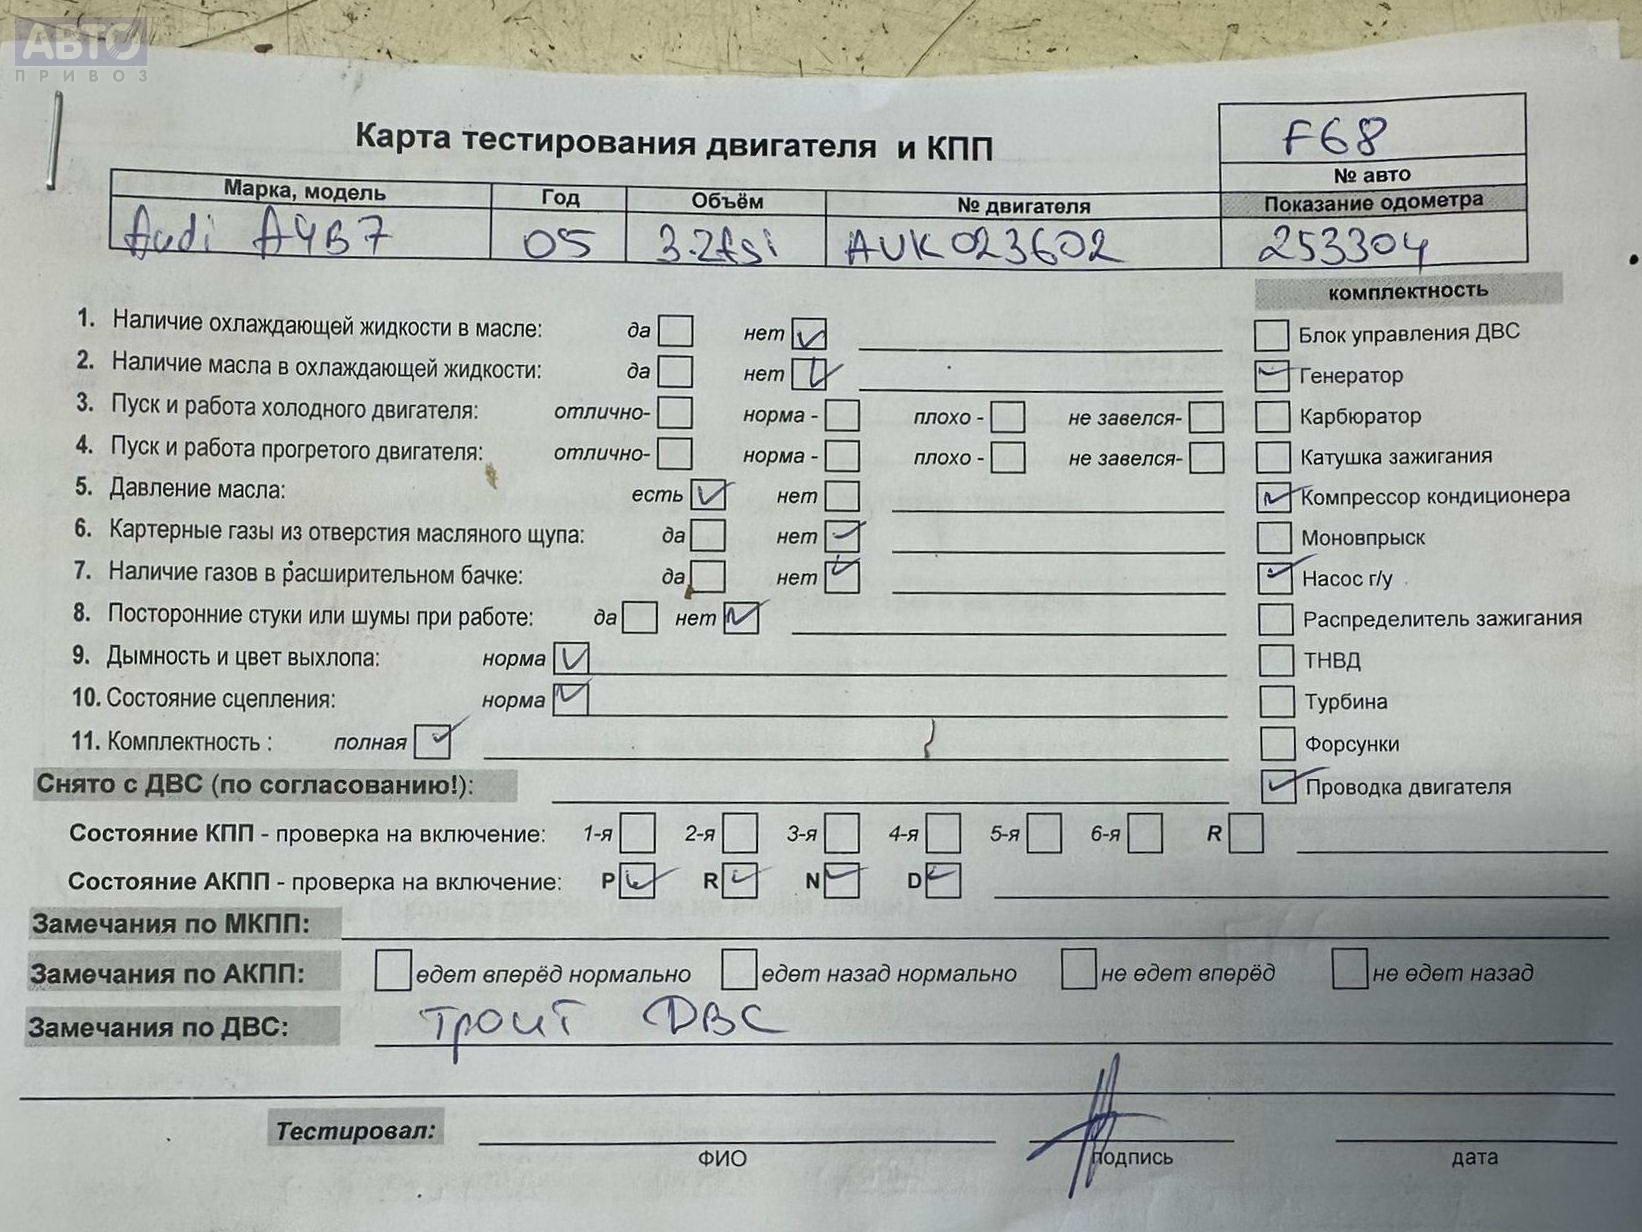 АВТО
ПРИВОЗ
F68
Карта тестирования двигателя и КПП
№ авто
Марка, модель Год Объём № двигателя Показание одометра
Audi A4B7 05 3.2fsi AUK023602 253304
комплектность
1. Наличие охлаждающей жидкости в масле: да нет
Блок управления ДВС
2. Наличие масла в охлаждающей жидкости: да нет
Генератор
3. Пуск и работа холодного двигателя: отлично- норма - плохо - не завелся-
Карбюратор
4. Пуск и работа прогретого двигателя: отлично- норма - плохо - не завелся-
Катушка зажигания
5. Давление масла: есть нет
Компрессор кондиционера
6. Картерные газы из отверстия масляного щупа: да нет
Моновпрыск
7. Наличие газов в расширительном бачке: да нет
Насос г/у
8. Посторонние стуки или шумы при работе: да нет
Распределитель зажигания
9. Дымность и цвет выхлопа: норма
ТНВД
10. Состояние сцепления: норма
Турбина
11. Комплектность : полная
Форсунки
Снято с ДВС (по согласованию!):
Проводка двигателя
Состояние КПП - проверка на включение: 1-я 2-я 3-я 4-я 5-я 6-я R
Состояние АКПП - проверка на включение: P R N D
Замечания по МКПП:
Замечания по АКПП: едет вперёд нормально едет назад нормально не едет вперёд не едет назад
Замечания по ДВС: троит ДВС
Тестировал:
ФИО подпись дата